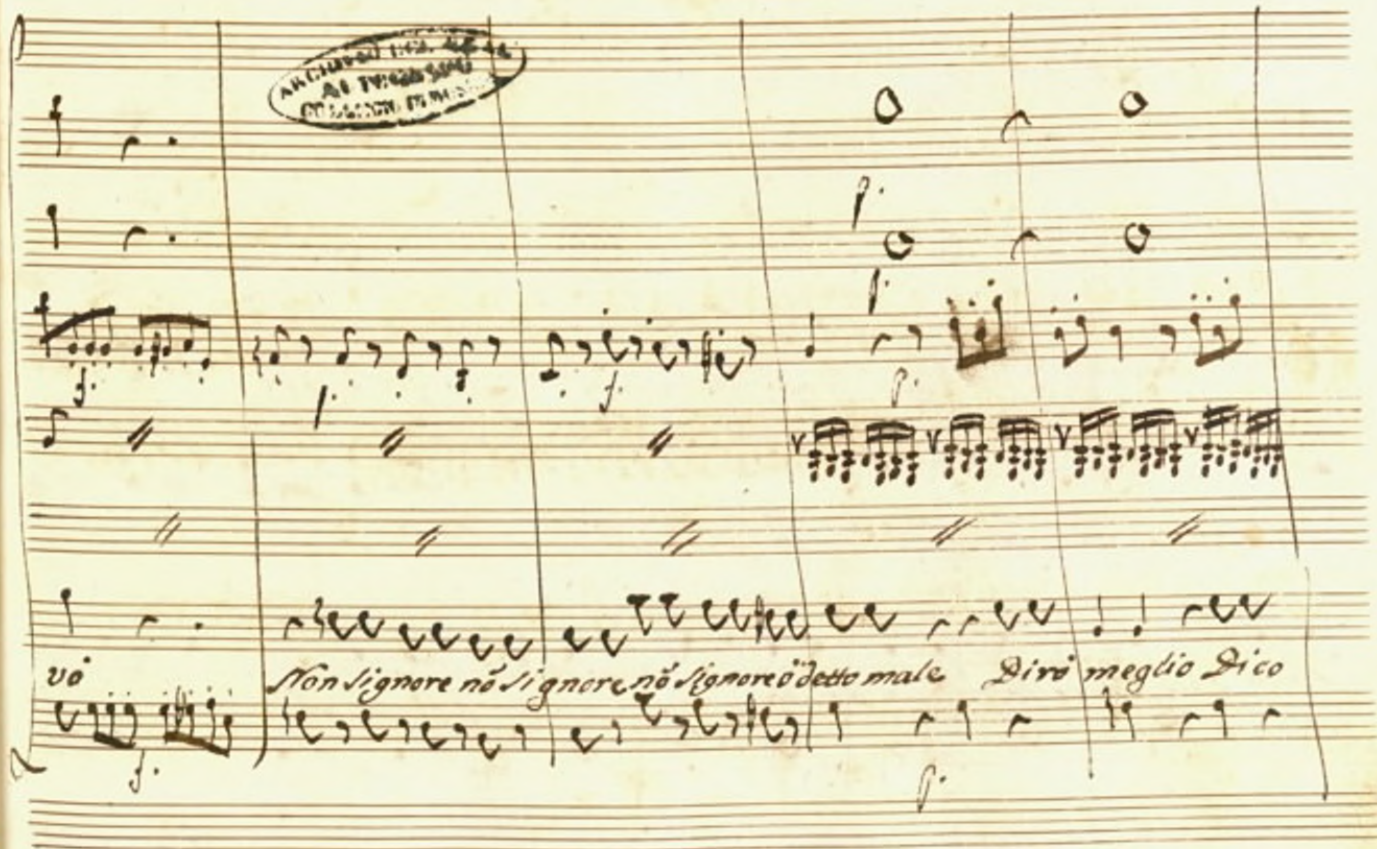 p.
p.
f. p. f. p.
vò Non signore nõ signore nõ signore ò detto male Dirò meglio Dico
f. p.